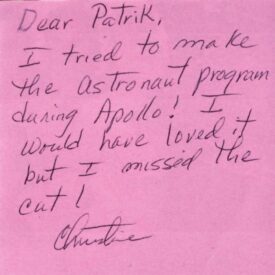 Dear Patrik,
I tried to make
the Astronaut program
during Apollo! I
would have loved it
but I missed the
cut!
Christie